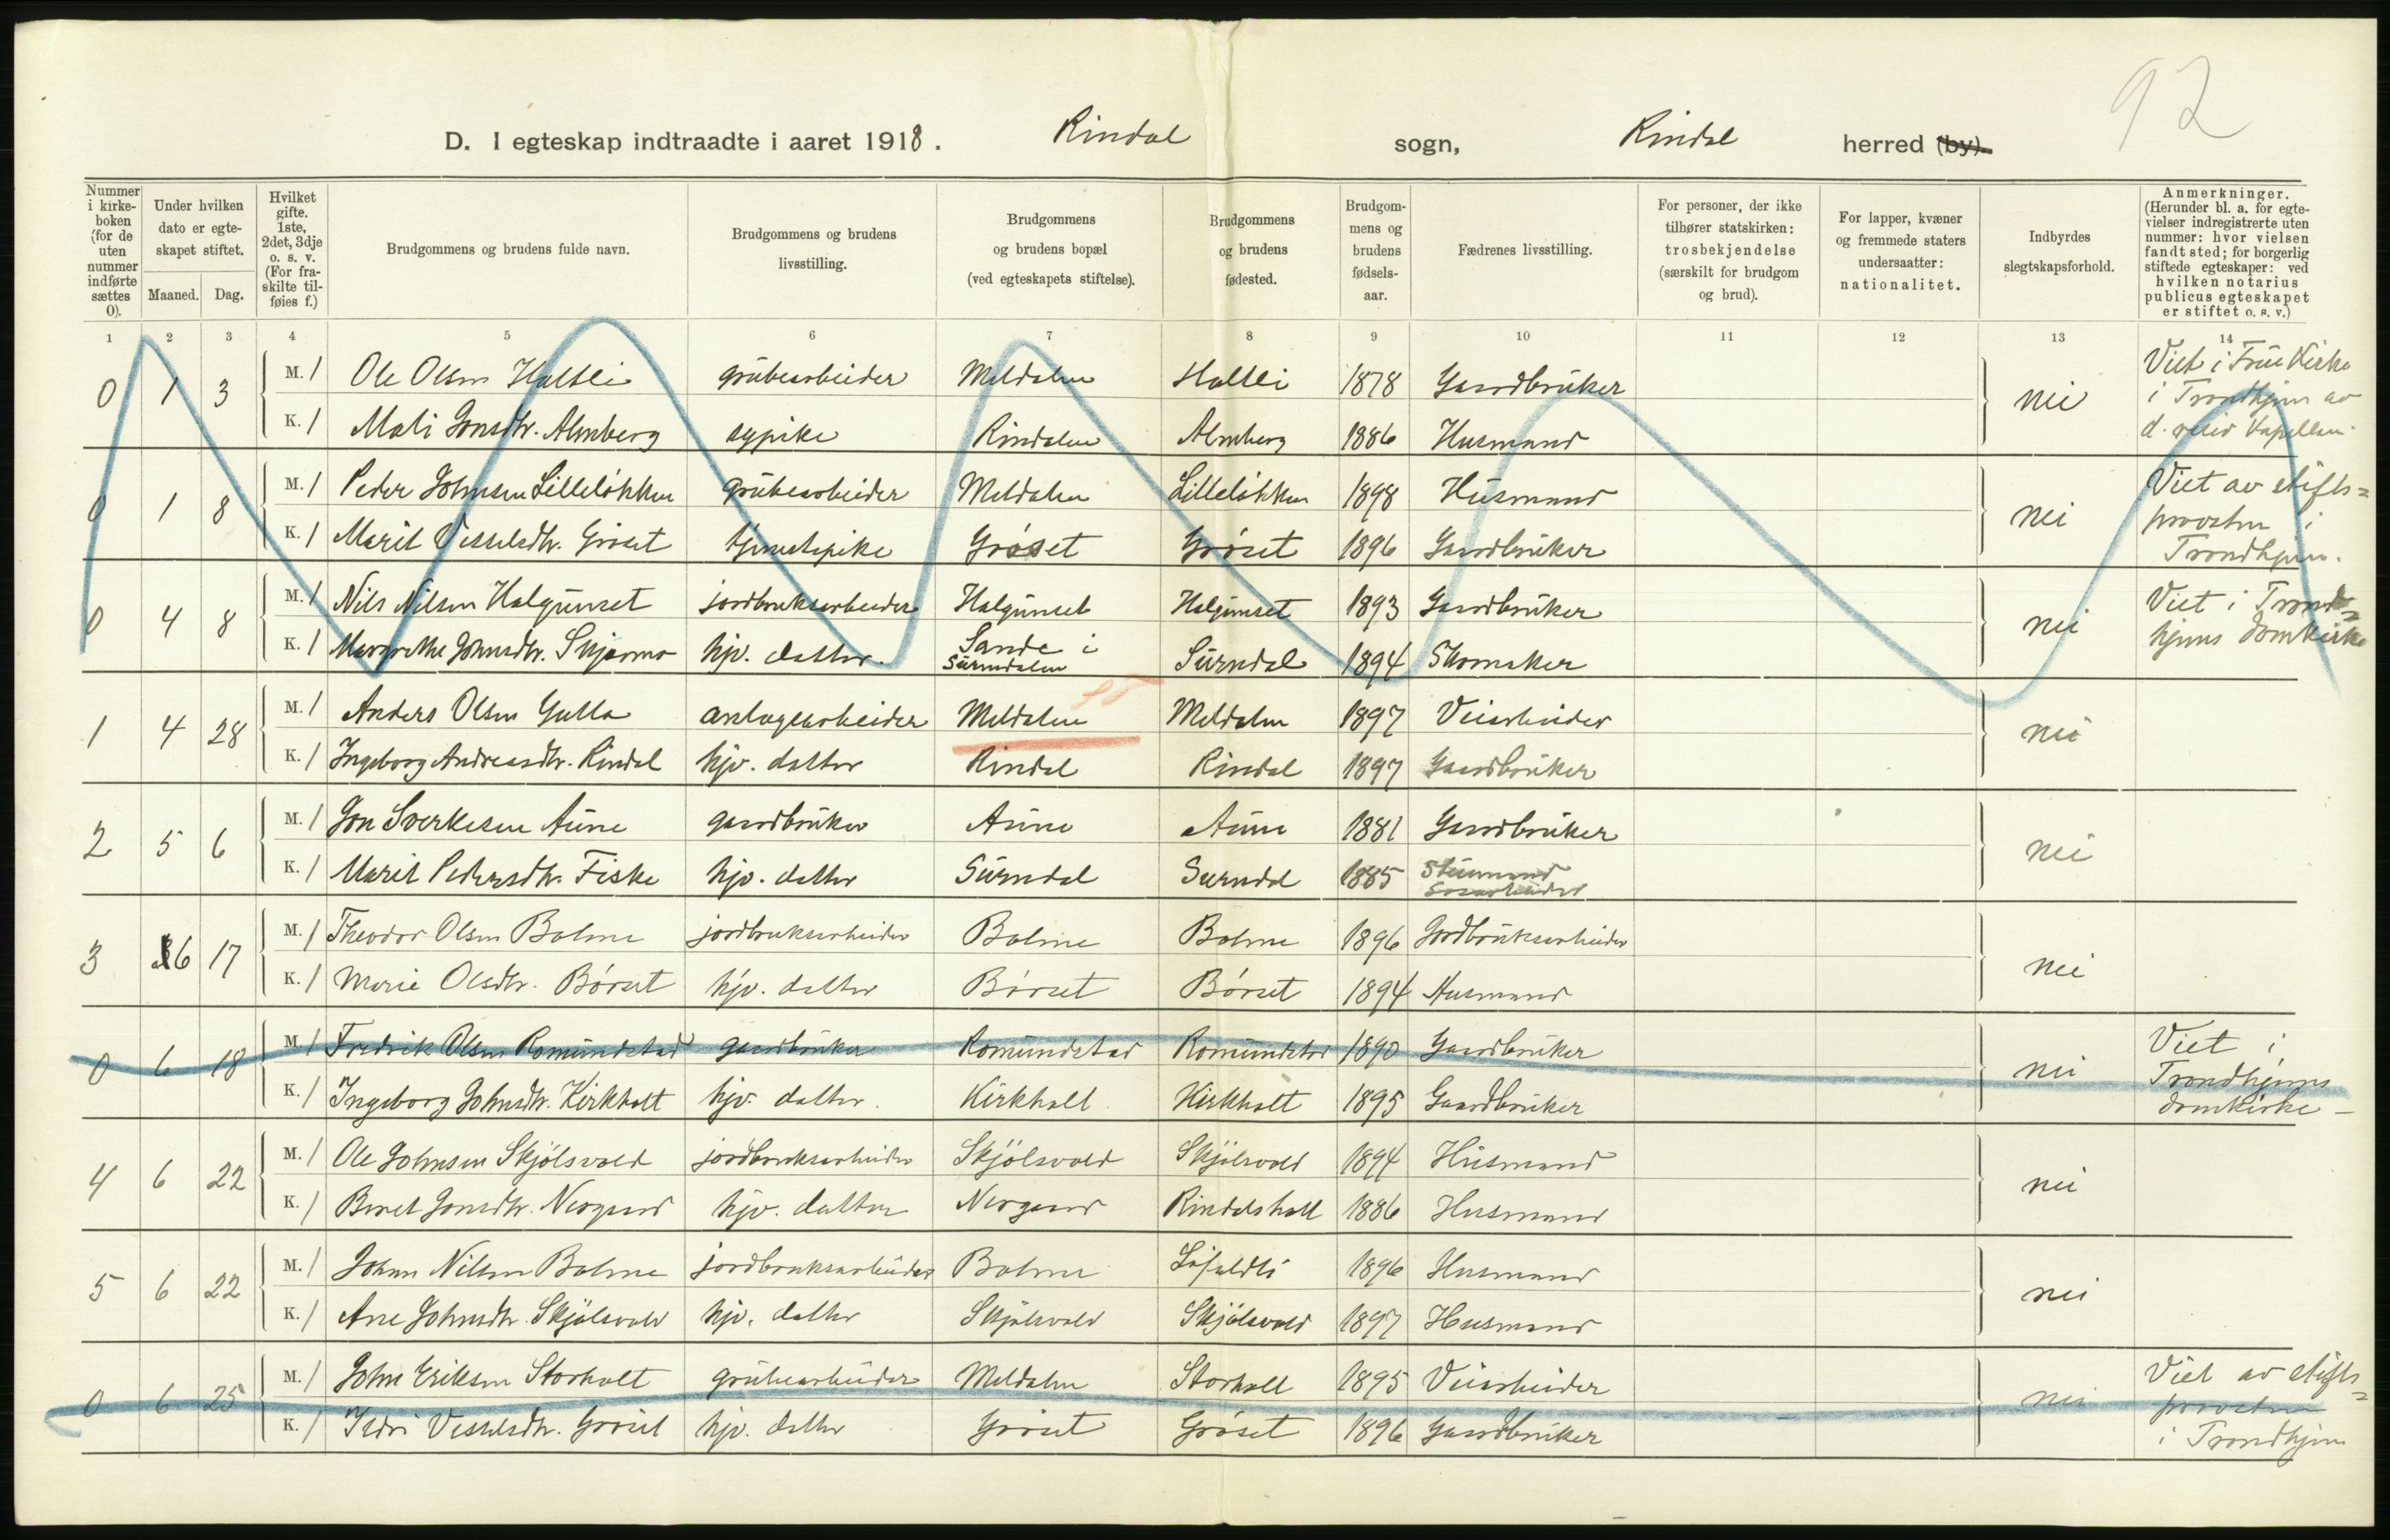 92
D. I egteskap indtraadte i aaret 1918. Rindal sogn, Rindal herred (by).
Nummer i kirkeboken (for de uten nummer indførte sættes 0).
Under hvilken dato er egteskapet stiftet.
Maaned. Dag.
Hvilket gifte. 1ste, 2det, 3dje o. s. v. (For fraskilte tilføies f.)
Brudgommens og brudens fulde navn.
Brudgommens og brudens livsstilling.
Brudgommens og brudens bopæl (ved egteskapets stiftelse).
Brudgommens og brudens fødested.
Brudgommens og brudens fødselsaar.
Fædrenes livsstilling.
For personer, der ikke tilhører statskirken: trosbekjendelse (særskilt for brudgom og brud).
For lapper, kvæner og fremmede staters undersaatter: nationalitet.
Indbyrdes slegtskapsforhold.
Anmerkninger. (Herunder bl. a. for egtevielser indregistrerte uten nummer: hvor vielsen fandt sted; for borgerlig stiftede egteskaper: ved hvilken notarius publicus egteskapet er stiftet o. s. v.)
1 2 3 4 5 6 7 8 9 10 11 12 13 14
0 1 3 M. 1 Ole Olsen Haltli grubearbeider Meldalen Haltli 1878 Gaardbruker nei Viet i Frue Kirke i Trondhjem av d. resid Kapellan.
K. 1 Mali Jonsdtr. Almberg sypike Rindalen Almberg 1886 Husmand
0 1 8 M. 1 Peder Johnsen Lilleløkken grubearbeider Meldalen Lilleløkken 1898 Husmand nei Viet av stiftsprovsten i Trondhjem.
K. 1 Marit Vesselsdtr. Grøset tjenestepike Grøset Grøset 1896 Gaardbruker
0 4 8 M. 1 Nils Nilsen Halgunset jordbruksarbeider Halgunset Halgunset 1893 Gaardbruker nei Viet i Trondhjems domkirke
K. 1 Margrethe Johnsdtr. Skjermo hjv. datter. Sande i Surndalen Surndal 1894 Skomaker
1 4 28 M. 1 Anders Olsen Gulla anlægsarbeider Meldalen Meldalen 1897 Veiarbeider nei
K. 1 Ingeborg Andreasdtr. Rindal hjv. datter Rindal Rindal 1897 Gaardbruker
2 5 6 M. 1 Jon Sverkesen Aune gaardbruker Aune Aune 1881 Gaardbruker nei
K. 1 Marit Pedersdtr. Fiske hjv. datter Surndal Surndal 1885
3 6 17 M. 1 Theodor Olsen Bolme jordbruksarbeider Bolme Bolme 1896 Jordbruksarbeider nei
K. 1 Marie Olsdtr. Børset hjv. datter Børset Børset 1894 Husmand
0 6 18 M. 1 Fredrik Olsen Romundstad gaardbruker Romundstad Romundstad 1890 Gaardbruker nei Viet i Trondhjems domkirke –
K. 1 Ingeborg Johnsdtr. Kirkholt hjv. datter. Kirkholt Kirkholt 1895 Gaardbruker
4 6 22 M. 1 Ole Johnsen Skjølsvold jordbruksarbeider Skjølsvold Skjølsvold 1894 Husmand nei
K. 1 Beret Jonsdtr. Nergaard hjv. datter Nergaard Rindalsholt 1886 Husmand
5 6 22 M. 1 Johan Nilsen Bolme jordbruksarbeider Bolme Løfaldli 1896 Husmand nei
K. 1 Ane Johnsdtr. Skjølsvold hjv. datter Skjølsvold Skjølsvold 1897 Husmand
0 6 25 M. 1 John Eriksen Storholt grubearbeider Meldalen Storholt 1895 Veiarbeider nei Viet av stiftsprovsten i Trondhjem
K. 1 Vesselsdtr. Grøset hjv. datter Grøset Grøset 1896 Gaardbruker